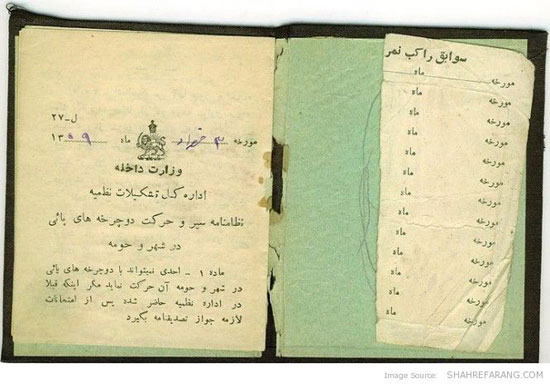 سوابق راکب نمر
مورخه ماه
مورخه ماه
مورخه ماه
مورخه ماه
مورخه ماه
مورخه ماه
مورخه ماه
مورخه ماه
مورخه ماه
مورخه ماه
مورخه ماه
مورخه ماه
ل-۲۷
مورخه ۳ ماه ۱۳۰۹
وزارت داخله
اداره کل تشکیلات نظمیه
نظامنامه سیر و حرکت دوچرخه های پائی
در شهر و حومه
ماده ۱ - احدی نمیتواند با دوچرخه های پائی
در شهر و حومه آن حرکت نماید مگر اینکه قبلا
در اداره نظمیه حاضر شده پس از امتحانات
لازمه جواز تصدیقنامه بگیرد
Image Source: SHAHREFARANG.COM